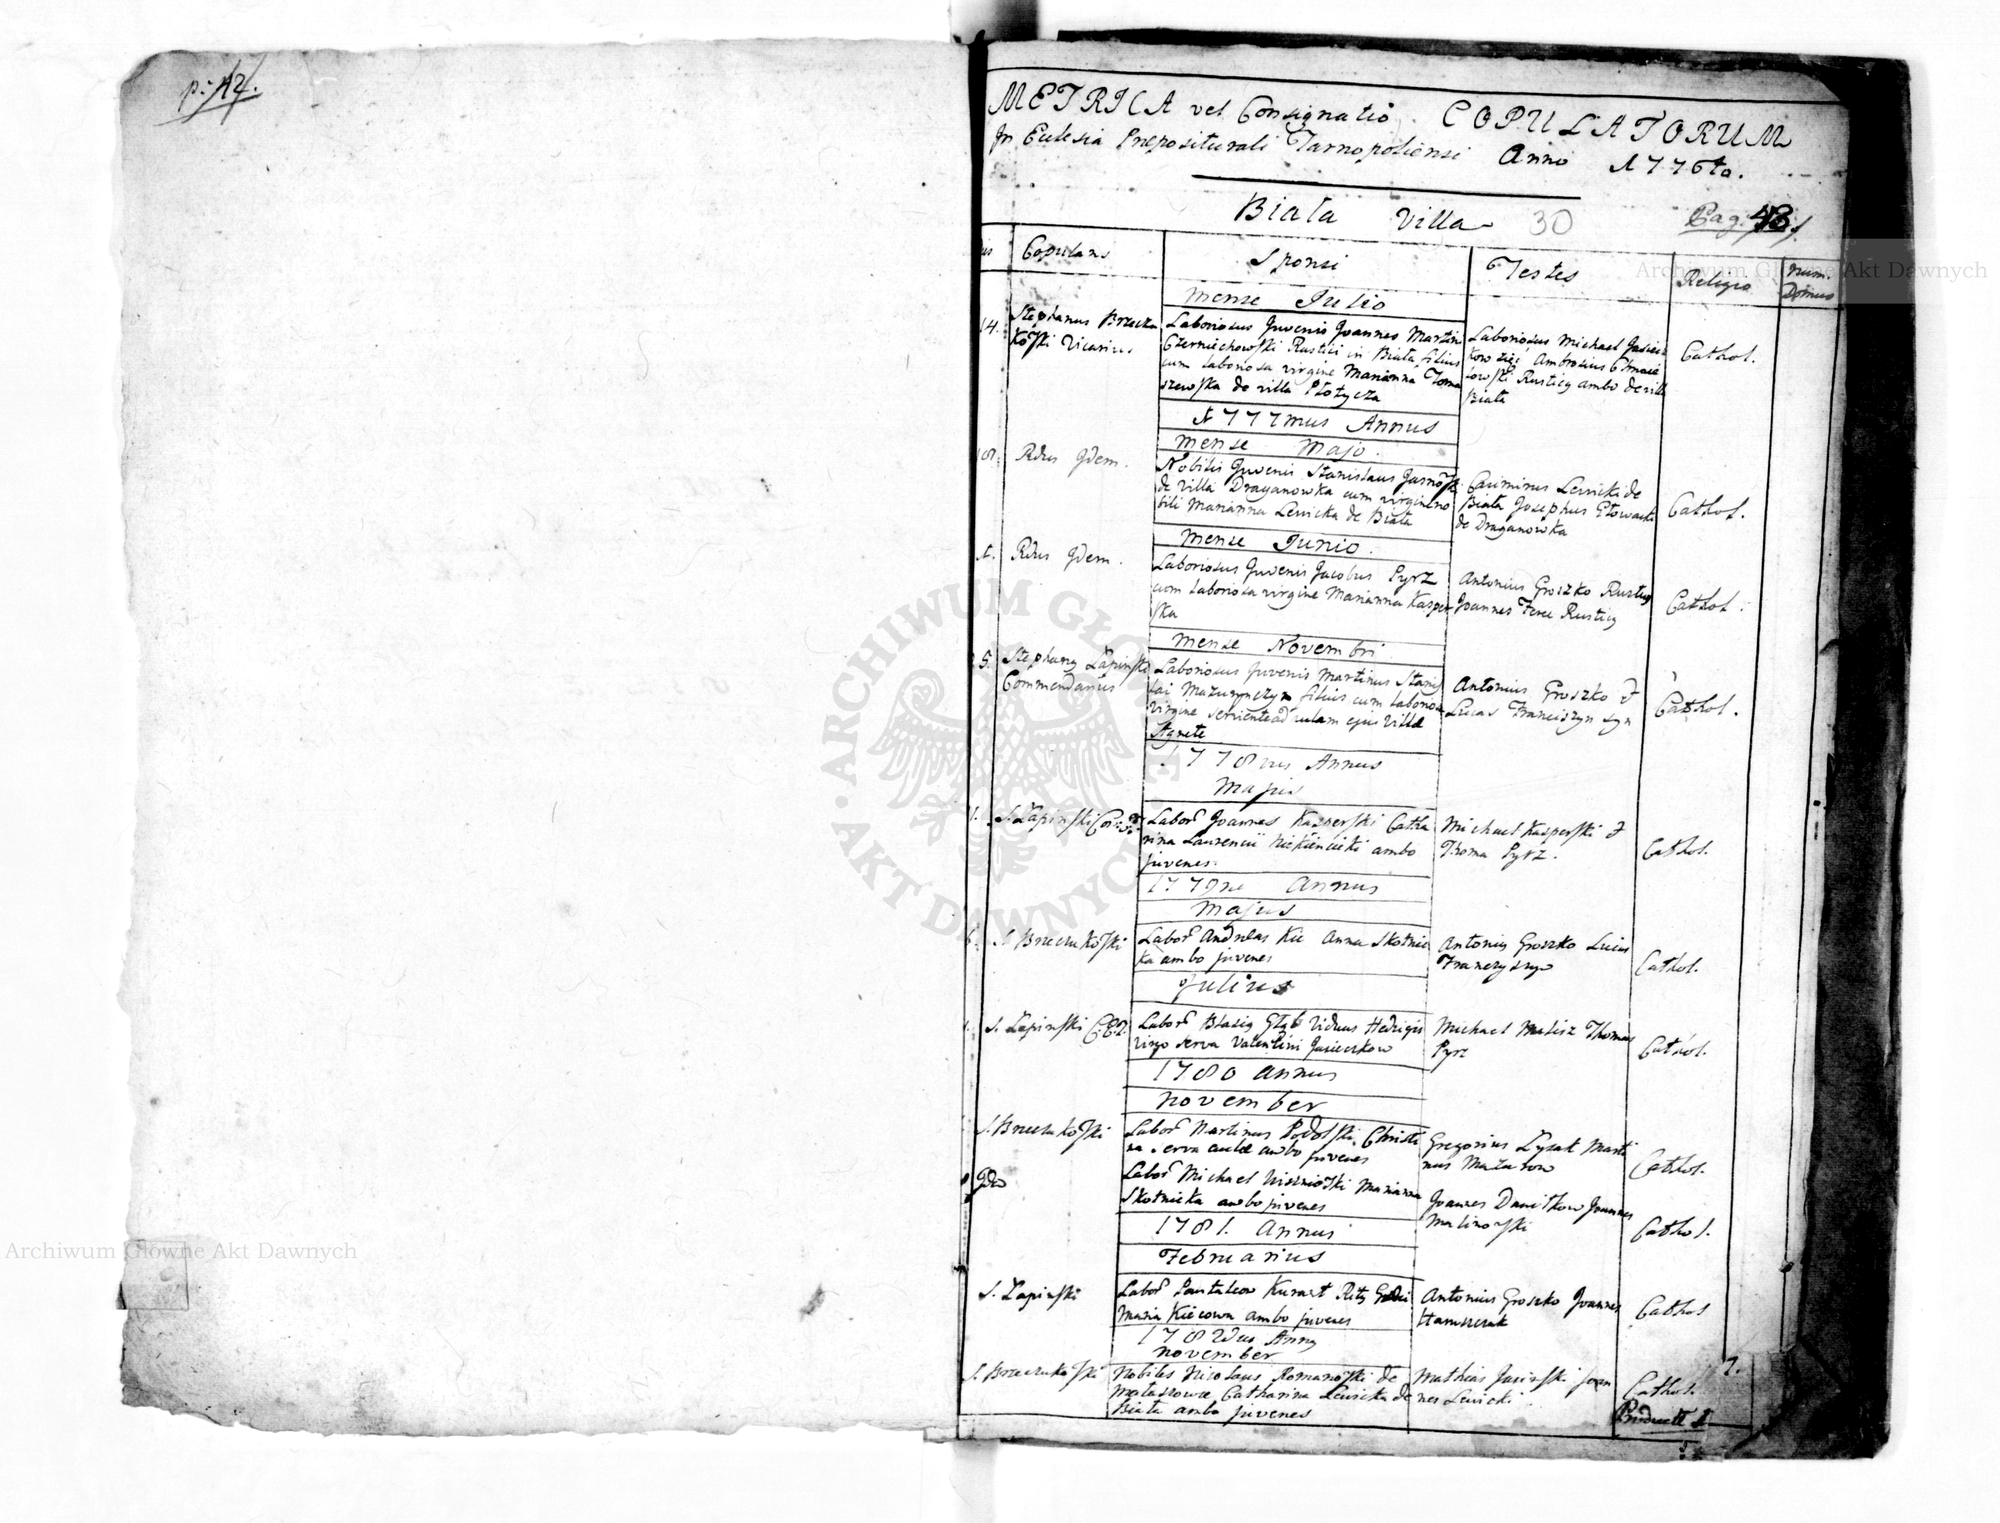 p: 42.
METRICA vel Consignatio COPULATORUM
In Eclesia Prepositurali Tarnopoliensi Anno 1776to.
Biała Villa 30 Pag: 43
Copulans Sponsi Testes Religio Num. Domus
Mense Julio
14. Stephanus Brzeczu
kowski Vicarius
Laboriosus Juvenis Joannes Martini
Czerniechowski Rustici in Biała filius
cum Laboriosa virgine Marianna Toma
szewska de villa Płotycza
Laboriosus Michael Jasiecz
kow Ambrosius
Rusticy ambo de villa
Biała
Cathol.
1777mus Annus
Mense Majo.
Rdus Idem.
Nobilis Juvenis Stanislaus
de Villa Draganowka cum virgine no
bili Marianna Lewicka de Biała
Casimirus Lewicki de
Biała Josephus Głowacki
de Draganowka
Cathol.
Mense Junio.
1. Rdus Idem.
Laboriosus Juvenis Jacobus Pyrz
cum Laboriosa virgine Marianna Kasper
ska
Antonius Groszko Rusticy
Joannes Rusticy
Cathol.
Mense Novembri
5. Stephany Łapinski
Commendarius
Laboriosus Juvenis Martinus Stanis
lai filius cum Laboriosa
virgine serviente ad aulam ejus Villæ
Agnete
Antonius Groszko &
Lucas Franciszyn Syn
Cathol.
1778vus Annus
Majus
S. Łapinski
Labor. Joannes Kasperski Catha
rina Laurencii ambo
juvenes.
Michael Kasperski &
Thoma Pyrz.
Cathol.
1779nus Annus
Majus
6. S. Brzeczukowski
Labor. Andreas Kic Anna Skotnic
ka ambo juvenes
Antonius Groszko Lucas
Cathol.
Julius
S. Łapinski
Labor. Blasius Viduus Hedvigis
virgo serva Valentini Jasieczkow
Michael Malisz Thomas
Pyrz
Cathol.
1780 Annus
November
S. Brzeczukowski
Labor. Martinus Podolski, Christi
na serva aulæ ambo juvenes
Gregorius Łysak Marti
nus Mazurow
Cathol.
Idem
Labor. Michael Wiszniowski Marianna
Skotnicka ambo juvenes
Joannes Danitkow Joannes
Malinowski
Cathol.
1781. Annus
Februarius
S. Łapinski
Labor. Pantaleon
Maria Kicowa ambo juvenes
Antonius Groszko Joannes
Cathol
November
S. Brzeczukowski
Nobiles Nicolaus Romanowski de
Malaszowce Catharina Lewicka de
Biała ambo juvenes
Mathias Jasinski Joan
nes Lewicki
Cathol.